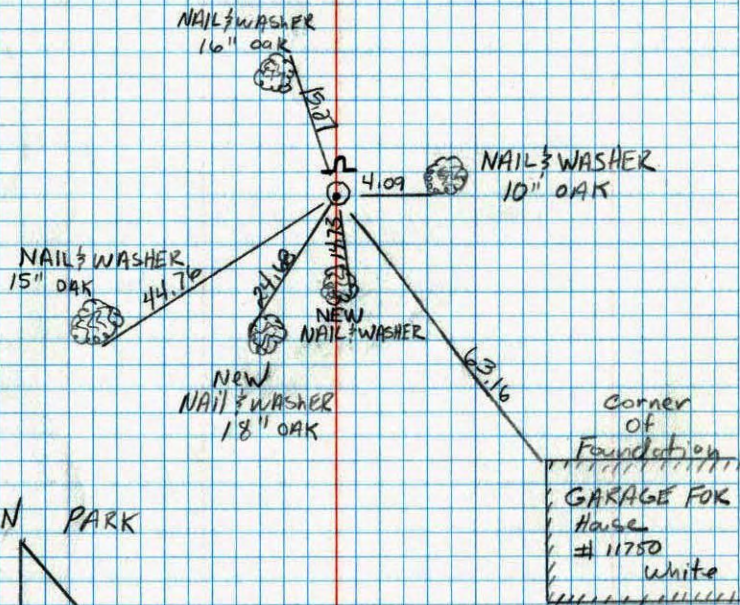 NAIL & WASHER
16" OAK
15.27
4.09
NAIL & WASHER
10" OAK
NAIL & WASHER
15" OAK
44.76
24.68
14.73
NEW
NAIL & WASHER
New
NAil & WASHER
18" OAK
63.16
Corner
Of
Foundation
GARAGE FOR
House
# 11750
White
N PARK